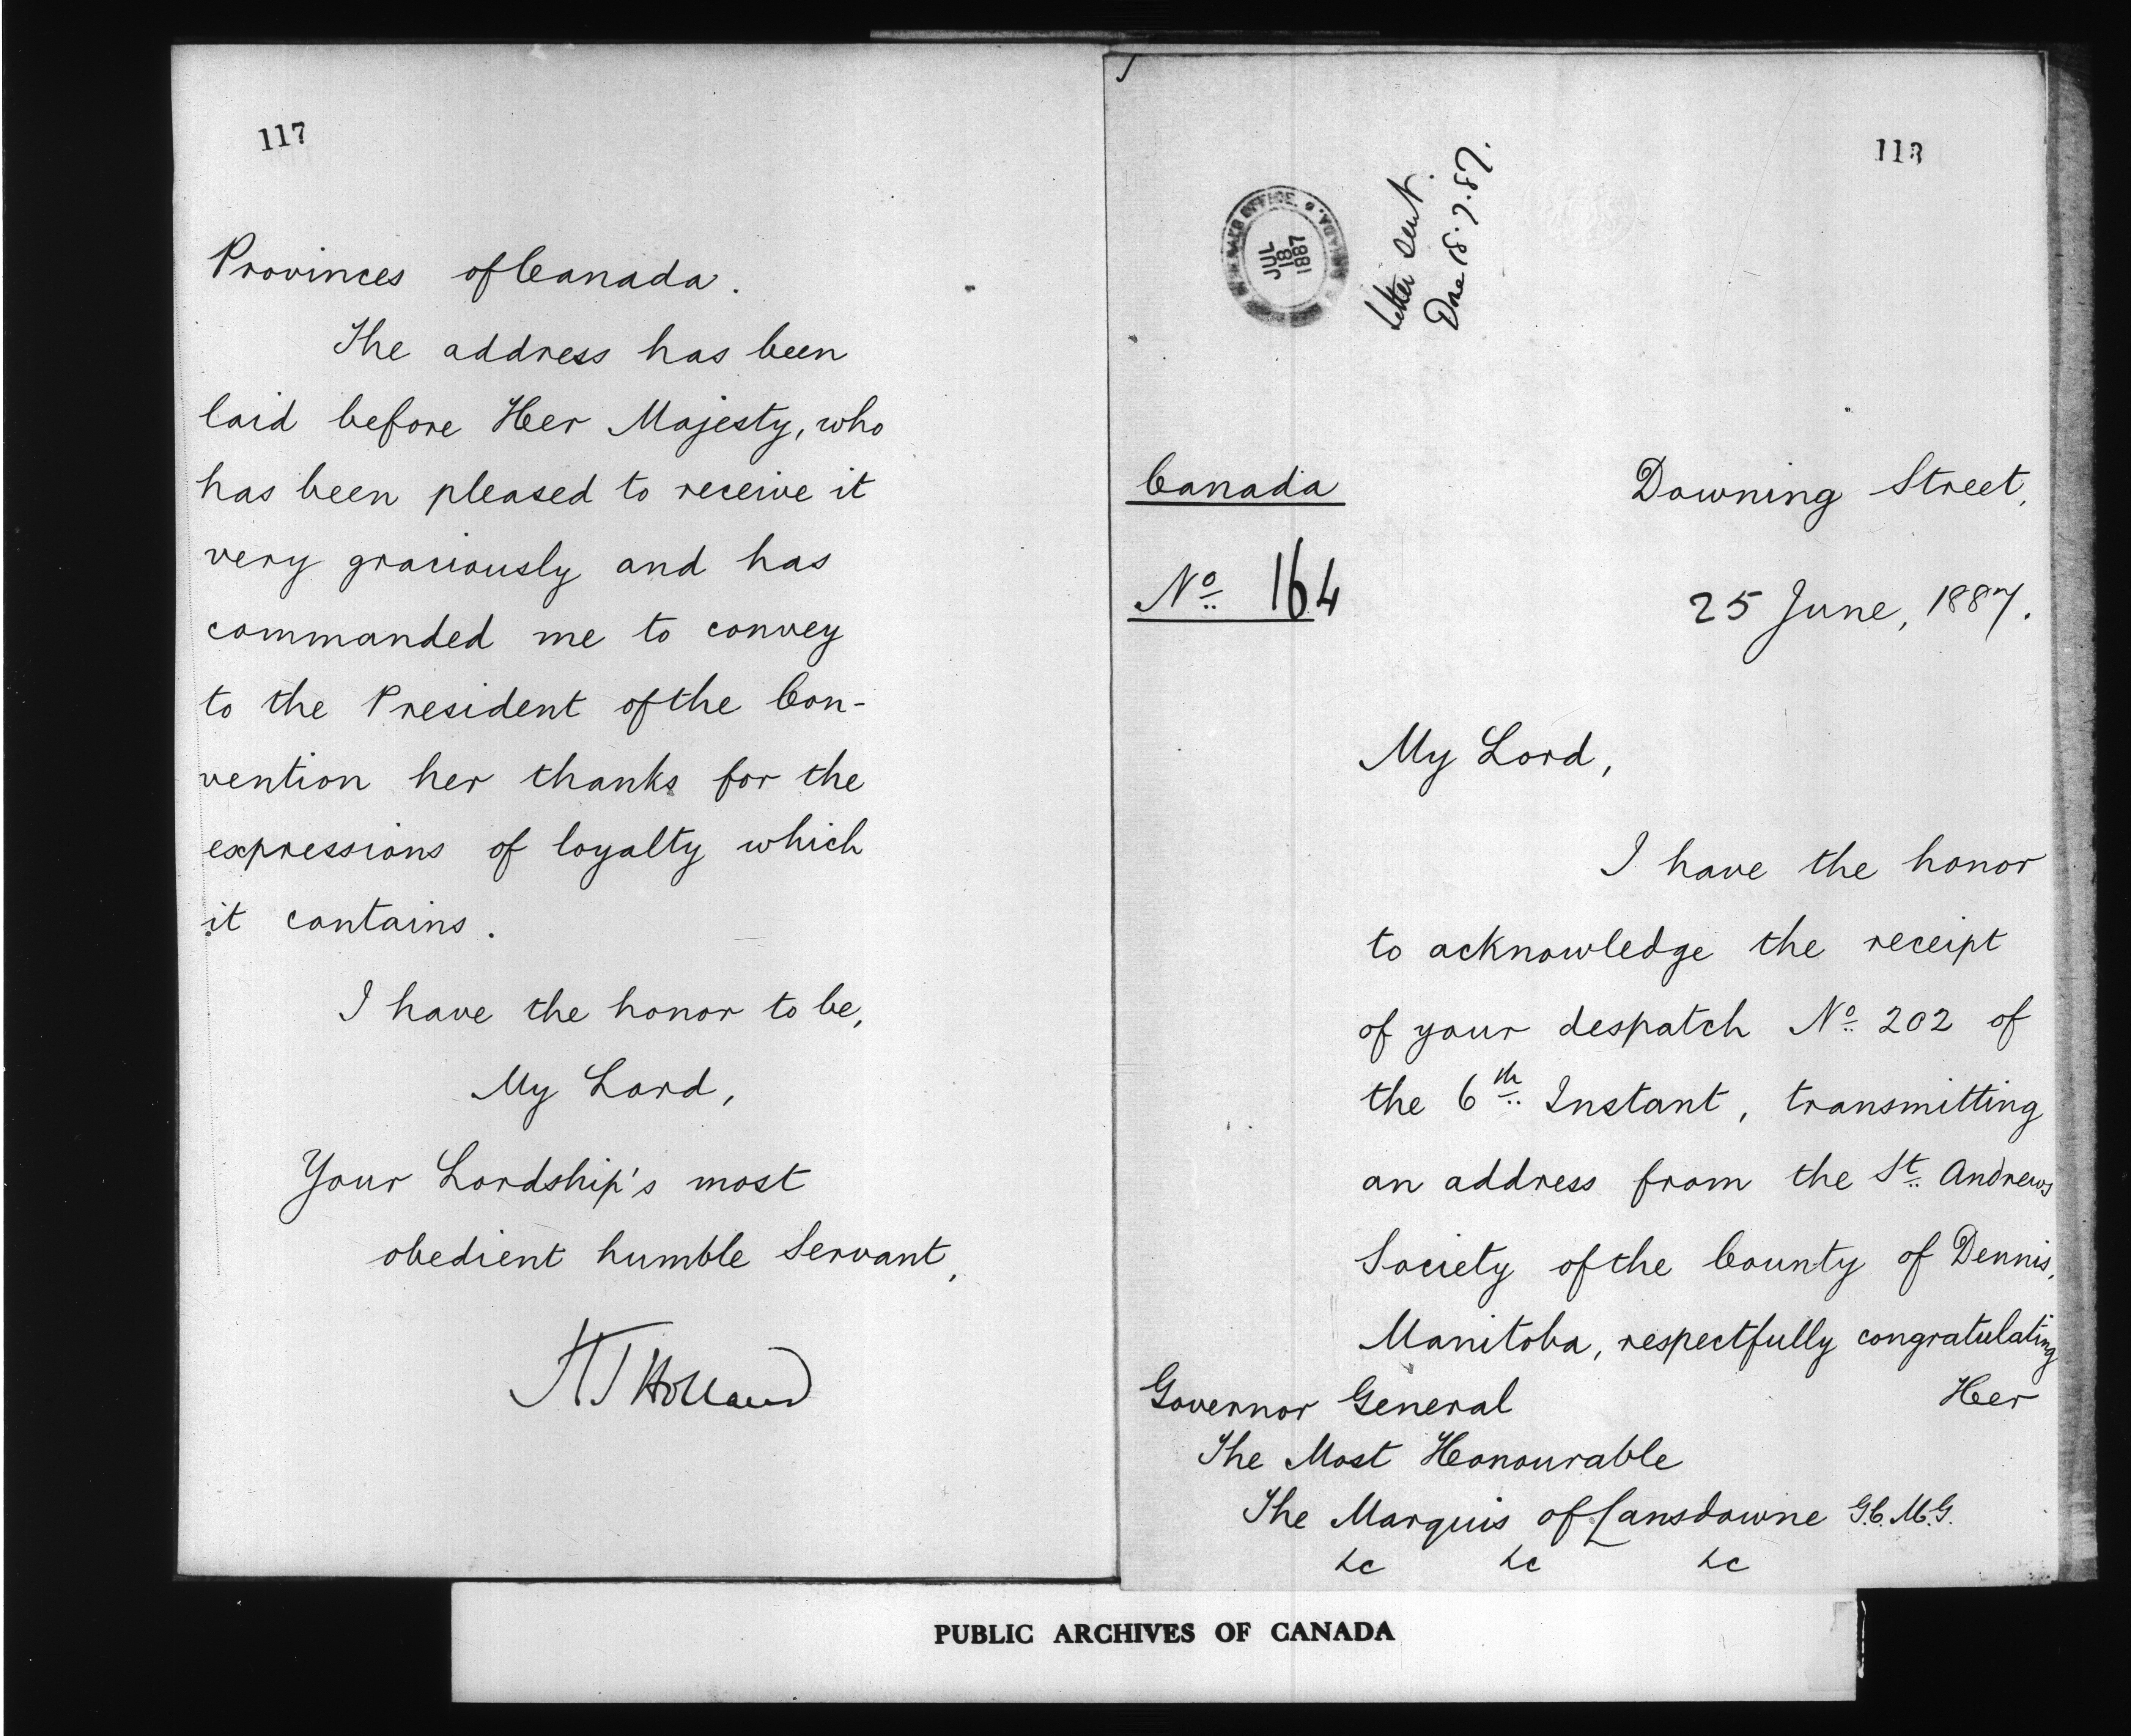 117
Provinces of Canada.
The address has been
laid before Her Majesty, who
has been pleased to receive it
very graciously and has
commanded me to convey
to the President of the Con-
vention her thanks for the
expressions of loyalty which
it contains.
I have the honor to be,
My Lord,
Your Lordship's most
obedient humble Servant,
H T Holland
118
OFFICE. CANADA.
JUL
18
1887
Letter sent.
18.7.87.
Canada
No. 164
Downing Street,
25 June, 1887.
My Lord,
I have the honor
to acknowledge the receipt
of your despatch No. 202 of
the 6th Instant, transmitting
an address from the St. Andrews
Society of the County of Dennis,
Manitoba, respectfully congratulating
Her
Governor General
The Most Honourable
The Marquis of Lansdowne G.C.M.G.
&c &c &c
PUBLIC ARCHIVES OF CANADA